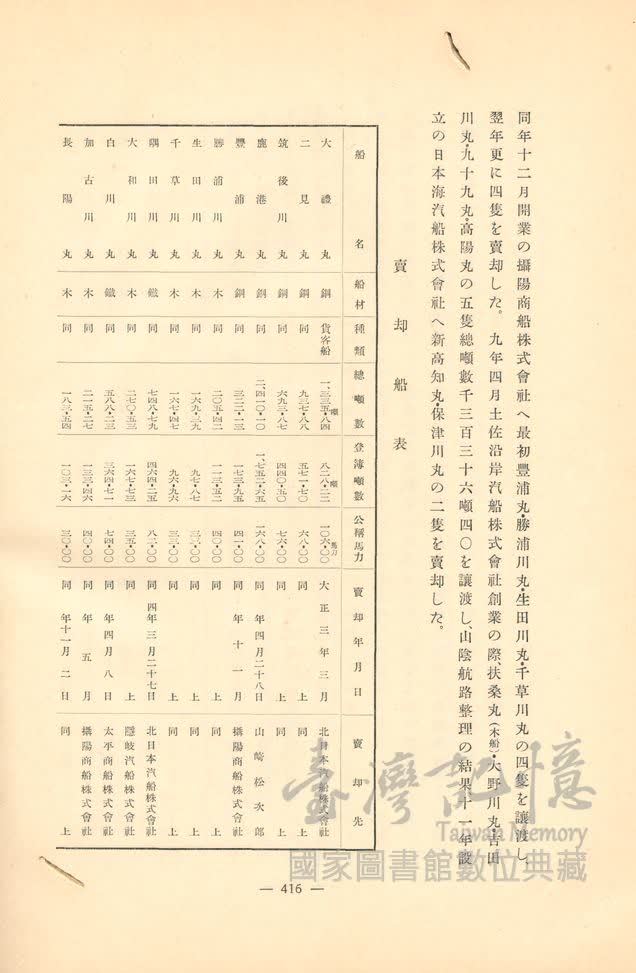 同年十二月開業の攝陽商船株式會社へ最初豐浦丸・勝浦川丸・生田川丸・千草川丸の四隻を讓渡し、
翌年更に四隻を賣却した。九年四月土佐沿岸汽船株式會社創業の際、扶桑丸(木船)・大野川丸・吉田
川丸・九十九丸・高陽丸の五隻總噸數千三百三十六噸四〇を讓渡し、山陰航路整理の結果十一年設
立の日本海汽船株式會社へ新高知丸・保津川丸の二隻を賣却した。
賣却船表
船名 船材 種類 總噸數 登簿噸數 公稱馬力 賣却年月日 賣却先
大禮丸 鋼 貨客船 一、三三五・八四噸 八二八・二三噸 一〇六・〇〇馬力 大正三年三月 北日本汽船株式會社
二見丸 鋼 同 九三七・八八 五七一・七〇 六八・〇〇 同上 同上
筑後川丸 鋼 同 六九三・八七 四四〇・五〇 七六・〇〇 同上 同上
鹿港丸 鋼 同 二、四一〇・一〇 一、七五二・六五 一六八・〇〇 同年四月二十八日 山崎松次郎
豐浦丸 鋼 同 三三二・一三 一七三・九五 四一・〇〇 同年十一月 攝陽商船株式會社
勝浦川丸 木 同 二〇五・四二 同上 同上
生田川丸 木 同 一六九・三九 九七・八七 三三・〇〇 同上 同上
千草川丸 木 同 一六七・四七 九六・九六 同上 同上
隅田川丸 鐵 同 七四八・七九 四六四・二五 八二・〇〇 同四年三月二十七日 北日本汽船株式會社
大和川丸 木 同 二七〇・五三 一六七・七三 三五・〇〇 同上 隱岐汽船株式會社
白川丸 鐵 同 五八八・二三 三六四・七一 七四・〇〇 同年四月八日 太平商船株式會社
加古川丸 木 同 二一五・二七 一三三・四六 四〇・〇〇 同年五月 攝陽商船株式會社
長陽丸 木 同 一八三・五四 一〇三・一六 三〇・〇〇 同年十一月二日 同上
— 416 —
臺灣記憶
Taiwan Memory
國家圖書館數位典藏